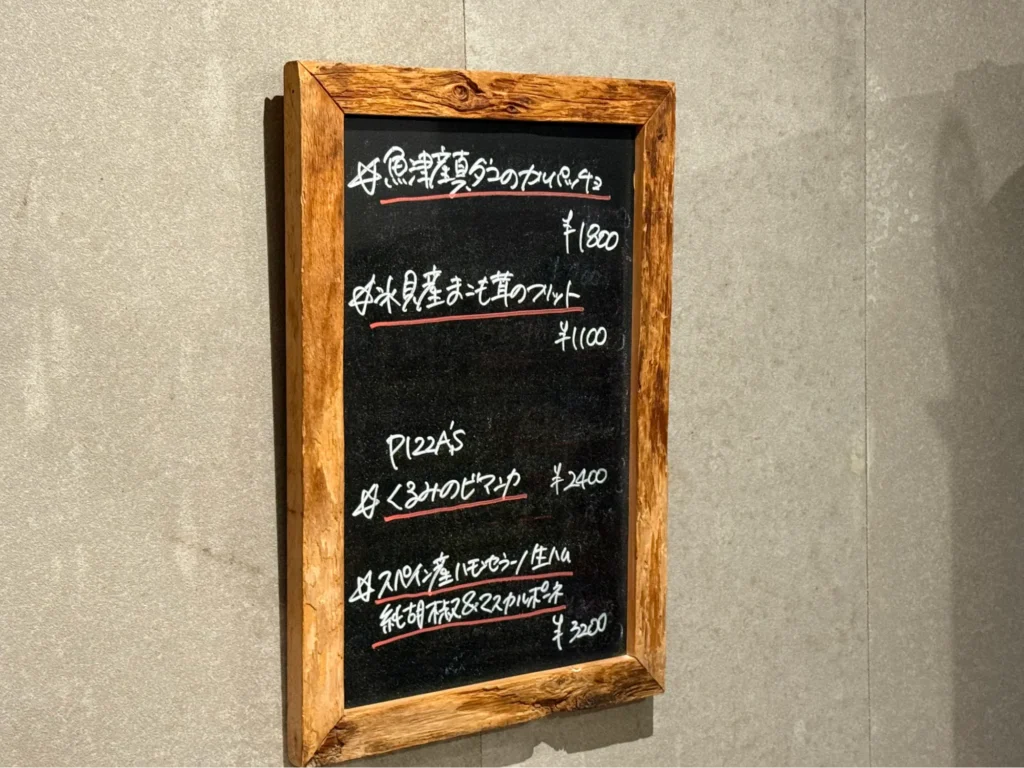 ☆魚津産真ダコのカルパッチョ
¥1800
☆氷見産まこも茸のフリット
¥1100
PIZZA'S
☆くるみのビアンカ ¥2400
☆スペイン産ハモンセラーノ生ハム
純胡椒&マスカルポーネ
¥3200